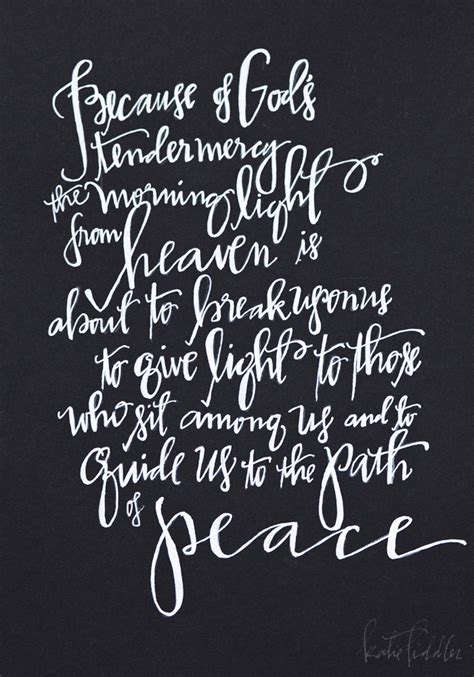 Because of God's
tender mercy
the morning light
from heaven is
about to break upon us
to give light to those
who sit among us and to
guide us to the path
of peace
katie fiddler